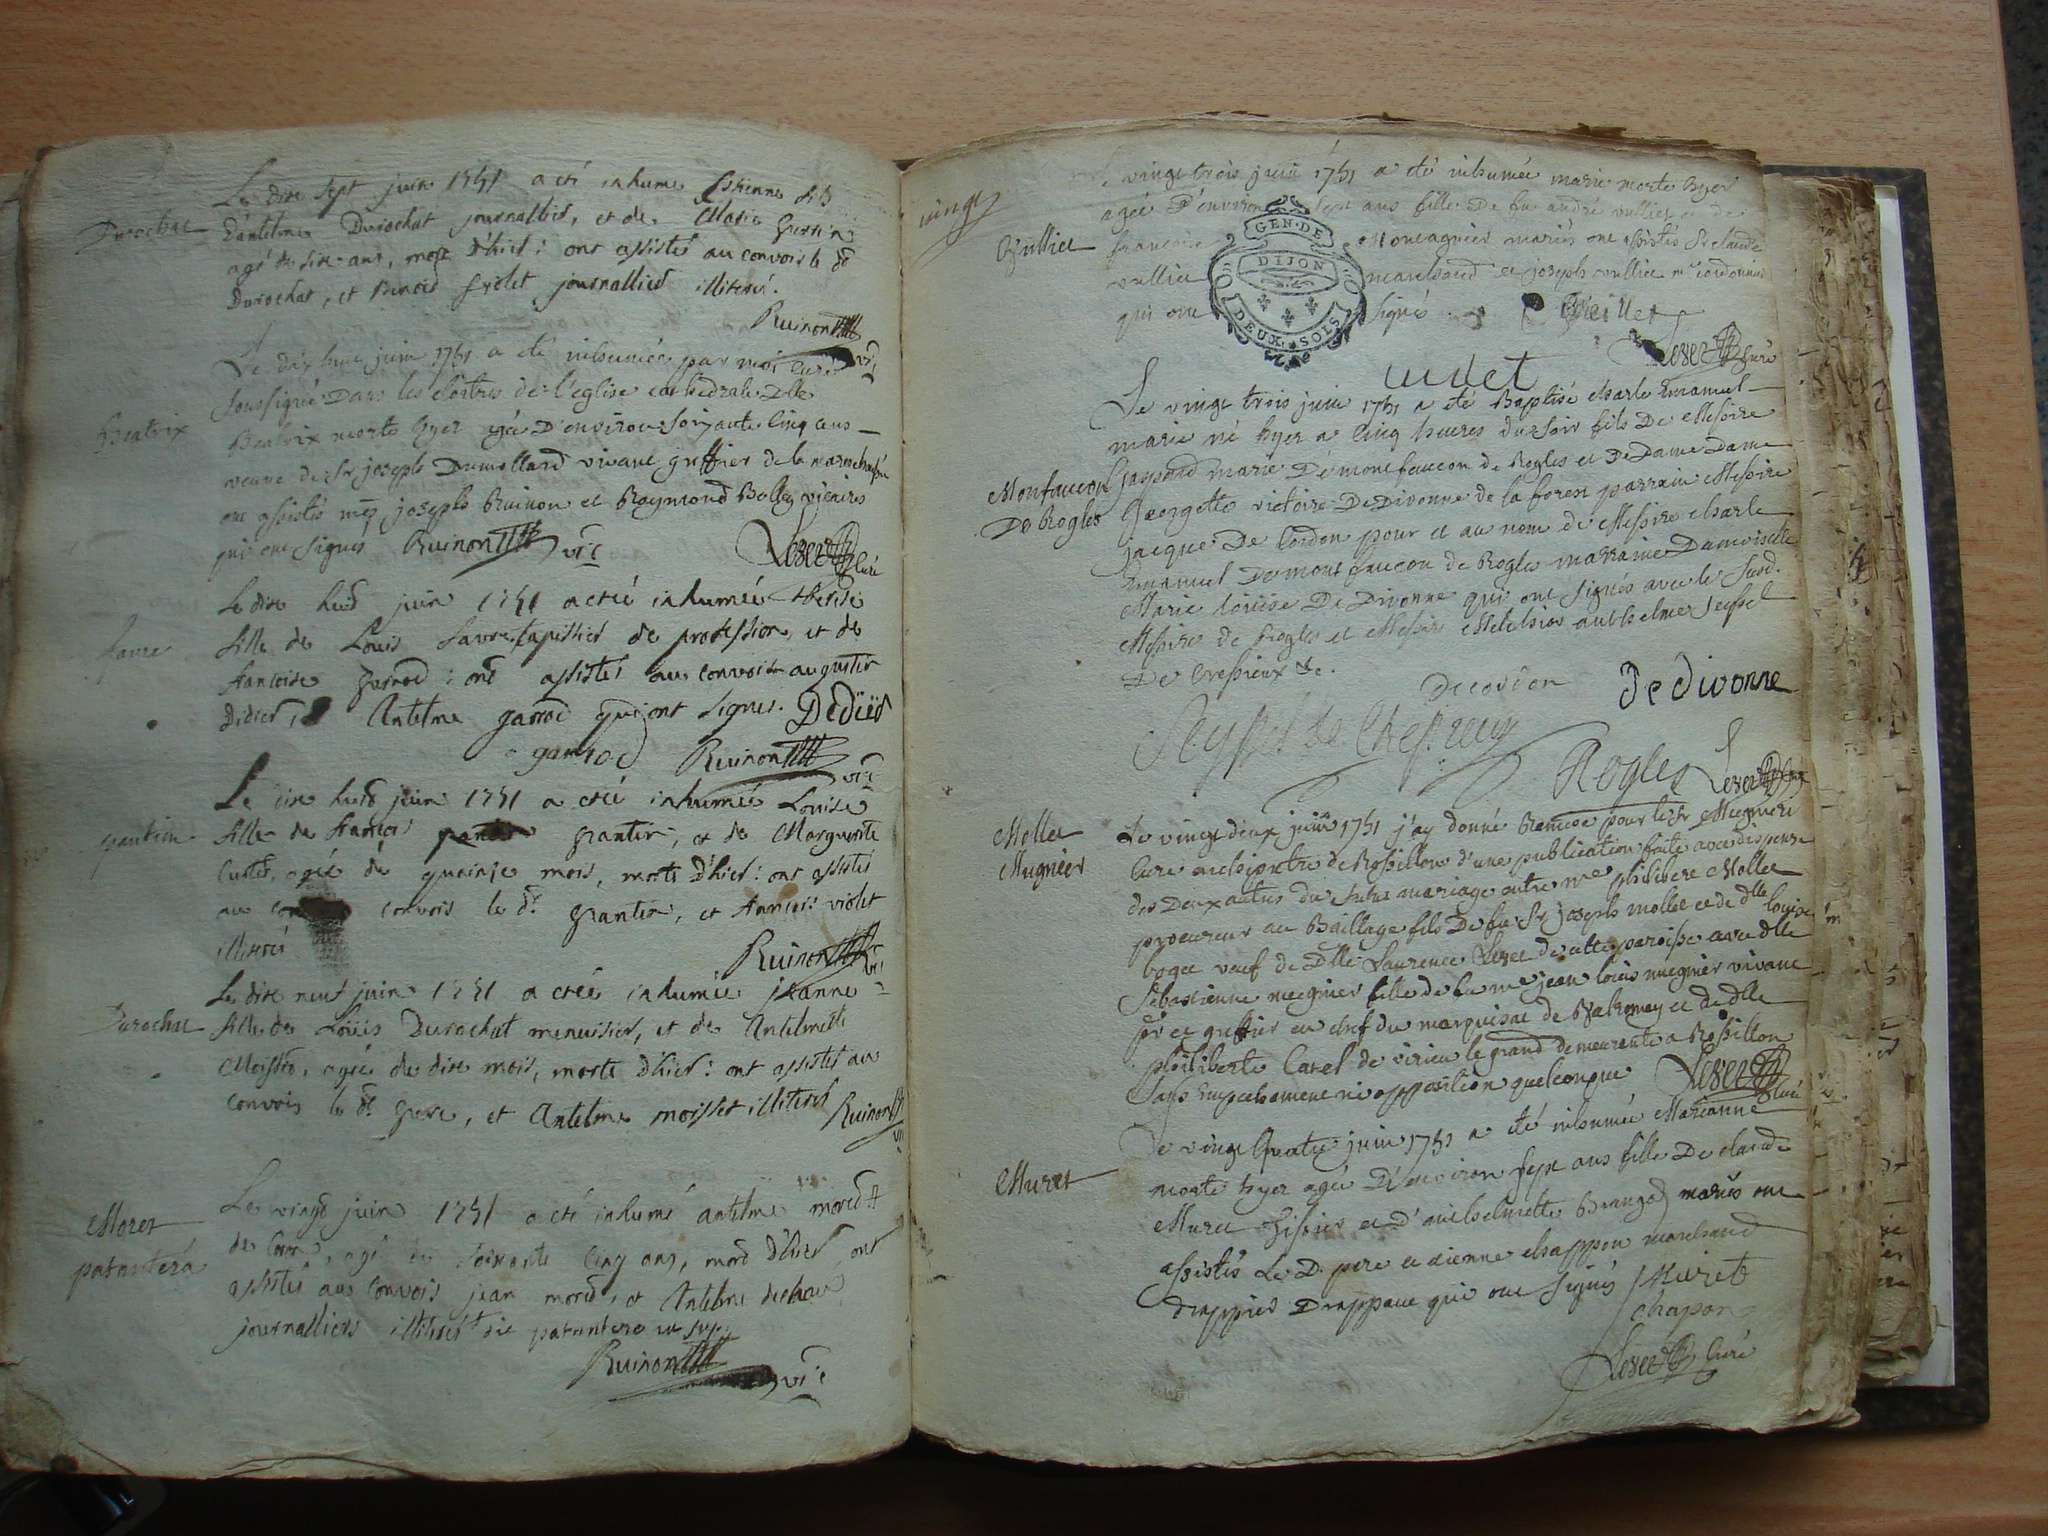 Durochat
Le dixe sept juin 1751 a eté inhumé Estienne fils
d'antelme Durochat journallier, et de Marie
agé de dixe ans, mort d'hier : ont assisté au convois le dt
Durochat, et Benoid Violet journallier illiterés.
Ruinon vic
Beatrix
Le dix huit juin 1751 a eté inhumée par moi curé
soussigné dans les cloitres de l'eglise cathedrale Dlle
Beatrix morte hyer agée d'environ soixante cinq ans
veuve de Sr joseph Dumollard vivant greffier de la marechaussée
ont assistés mes joseph Ruinon et Raymond Bolley vicaires
qui ont signés Ruinon vic
curé
favre
Le dixe huid juin 1751 a eteé inhumée therese
fille de Louis favre tapissier de profession, et de
francoise garrod : ond assistés au convois augustin
Didier, Antelme garrod qui ont signés. Dedier
garrod Ruinon vic
grantin
Le dixe huid juin 1751 a eteé inhumée Louise
fille de francois grantin, et de Marguerite
agée de quainze mois, morte d'hier : ont assistés
au convois le dt grantin, et francois violet
illiterés
Ruinon vic
Durochat
Le dixe neuf juin 1751 a eteé inhumée jeanne
fille de Loüis Durochat menuisier, et de Antelmette
Moissed, agée de dixe mois, morte d'hier : ont assistés au
convois le dt pere, et Antelme moisset illiterés Ruinon
vic
Moret
patantera
Le vingd juin 1751 a eté inhumé antelme mored
de agé de soixante cinq ans, mord d'hier ont
assistés au convois jean mored, et Antelme
journalliers illiterés dit patantera
Ruinon vic
vingt
Vulliet
Le vingt trois juin 1751 a eté inhumée marie morte hyer
agée d'environ sept ans fille de fu andré vulliet et de
francoise Montagnier mariés ont assistés Sr claude
vulliet marchand et joseph vulliet me cordonnier
qui ont signé
GEN·DE
DIJON
DEUX·SOLS
curé
Monfaucon
De Rogles
Le vingt trois juin 1751 a eté Baptisé charle Emanuel
marie né hyer a cinq heures du soir fils de Messire
gaspard marie De montfaucon de Rogles et De Dame Dame
georgette victoire De Divonne de la forest parrain Messire
jacque De Cordon pour et au nom de Messire charle
Emanuel De montfaucon de Rogles marraine Damoiselle
Marie loüise De Divonne qui ont signés avec le susd.
Messire de Rogles et Messire Melchior anthelme seyssel
De Cressieux &c.
Decordon De divonne
Seyssel de Chessieux
Rogles curé
Mollet
Mugnier
Le vingt deux juin 1751 j'ay donné Remise pour le Sr Mugnier
curé archipretre de Rossillon d'une publication faite avec dispense
des deux autres du futur mariage entre me philibert Mollet
procureur au Baillage fils De fu Sr joseph mollet et de dlle louise
bogee veuf de Dlle Laurence de cette paroisse avec dlle
Sebastienne mugnier fille de fu me jean louis mugnier vivant
pr et greffier en chef du marquisat de Valromey et de dlle
philiberte Carel de virieu le grand demeurente a Rossillon
sans empechement ni opposition quelconque
curé
Muret
Le vingt Quatre juin 1751 a eté inhumée Marianne
morte hyer agée d'environ sept ans fille De claude
Muret et d'anthelmette mariés ont
assistés Le D. pere et etienne chappon marchand
drappier qui ont signés Muret
chapon
curé